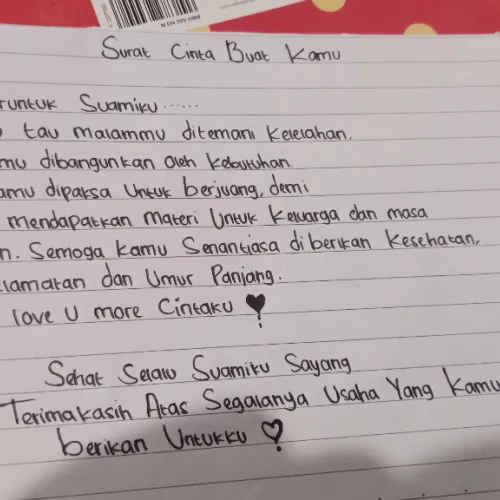 Surat Cinta Buat Kamu
runtuk Suamiku ......
tau malammu ditemani Kelelahan.
mu dibangunkan oleh kebutuhan
amu dipaksa Untuk berjuang, demi
mendapatkan materi Untuk Keluarga dan masa
n. Semoga kamu Senantiasa diberikan Kesehatan,
lamatan dan Umur Panjang.
love U more Cintaku
Sehat Selalu Suamiku Sayang
Terimakasih Atas Segalanya Usaha Yang Kamu
berikan Untukku